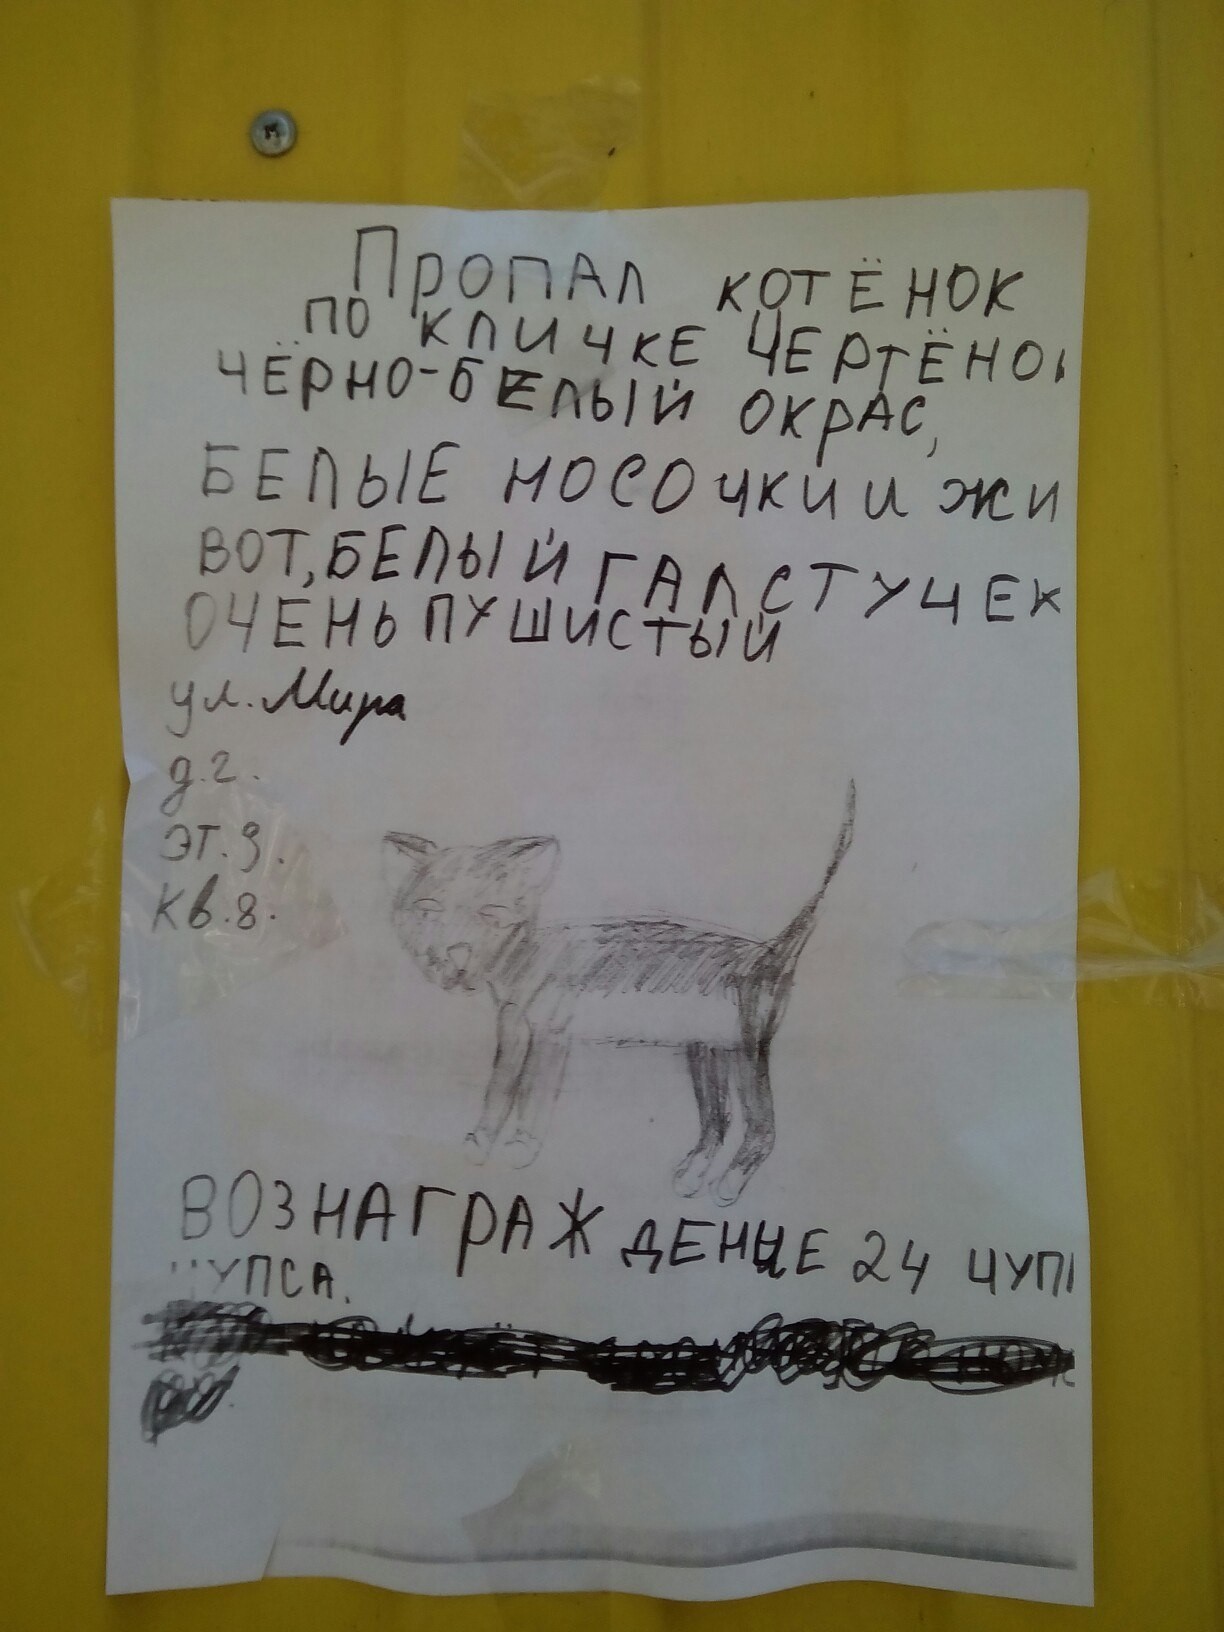 Пропал котёнок
по кличке Чертёно
чёрно-белый окрас,
белые носочки и жи
вот, белый галстучек
очень пушистый
ул. Мира
д. 2.
эт. 3.
кв. 8.
вознаграждение 24 чупа
чупса.